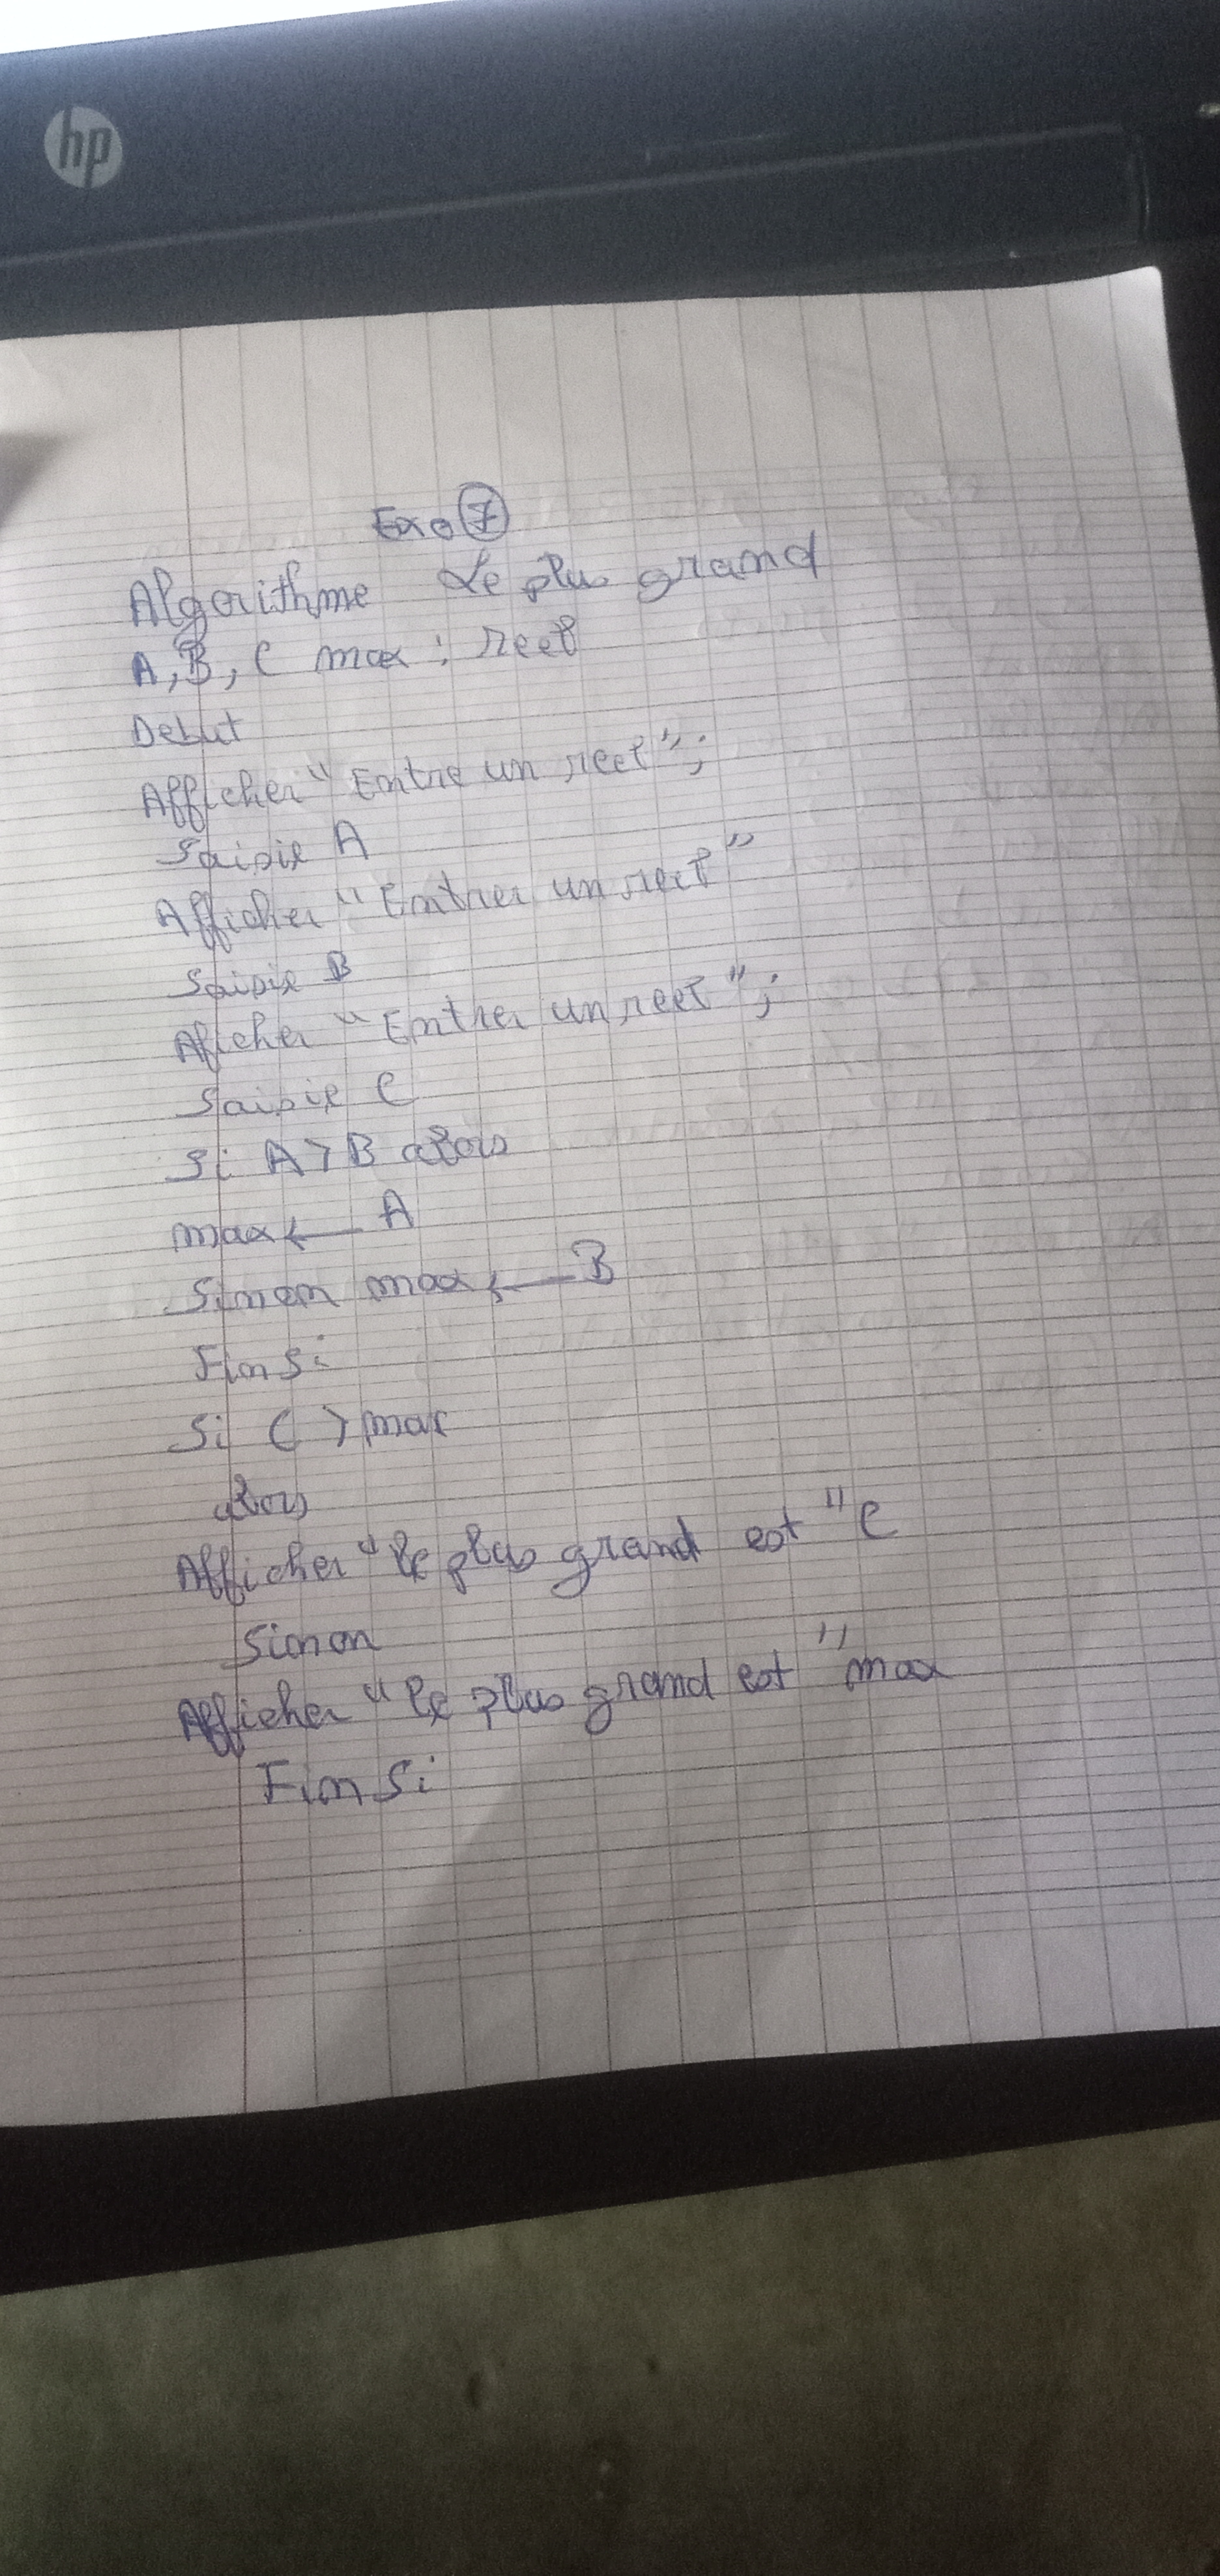 hp
Exo 7
Algorithme Le plus grand
A, B, C max : reel
Debut
Afficher " Entre un reel ";
Saisie A
Afficher " Entrer un reel "
Saisie B
Aficher " Entrer un reel ";
Saisie C
Si A > B alors
max ← A
Sinon max ← B
Fin Si
Si C > max
alors
Afficher " le plus grand est " C
Sinon
Afficher " le plus grand est " max
Fin Si